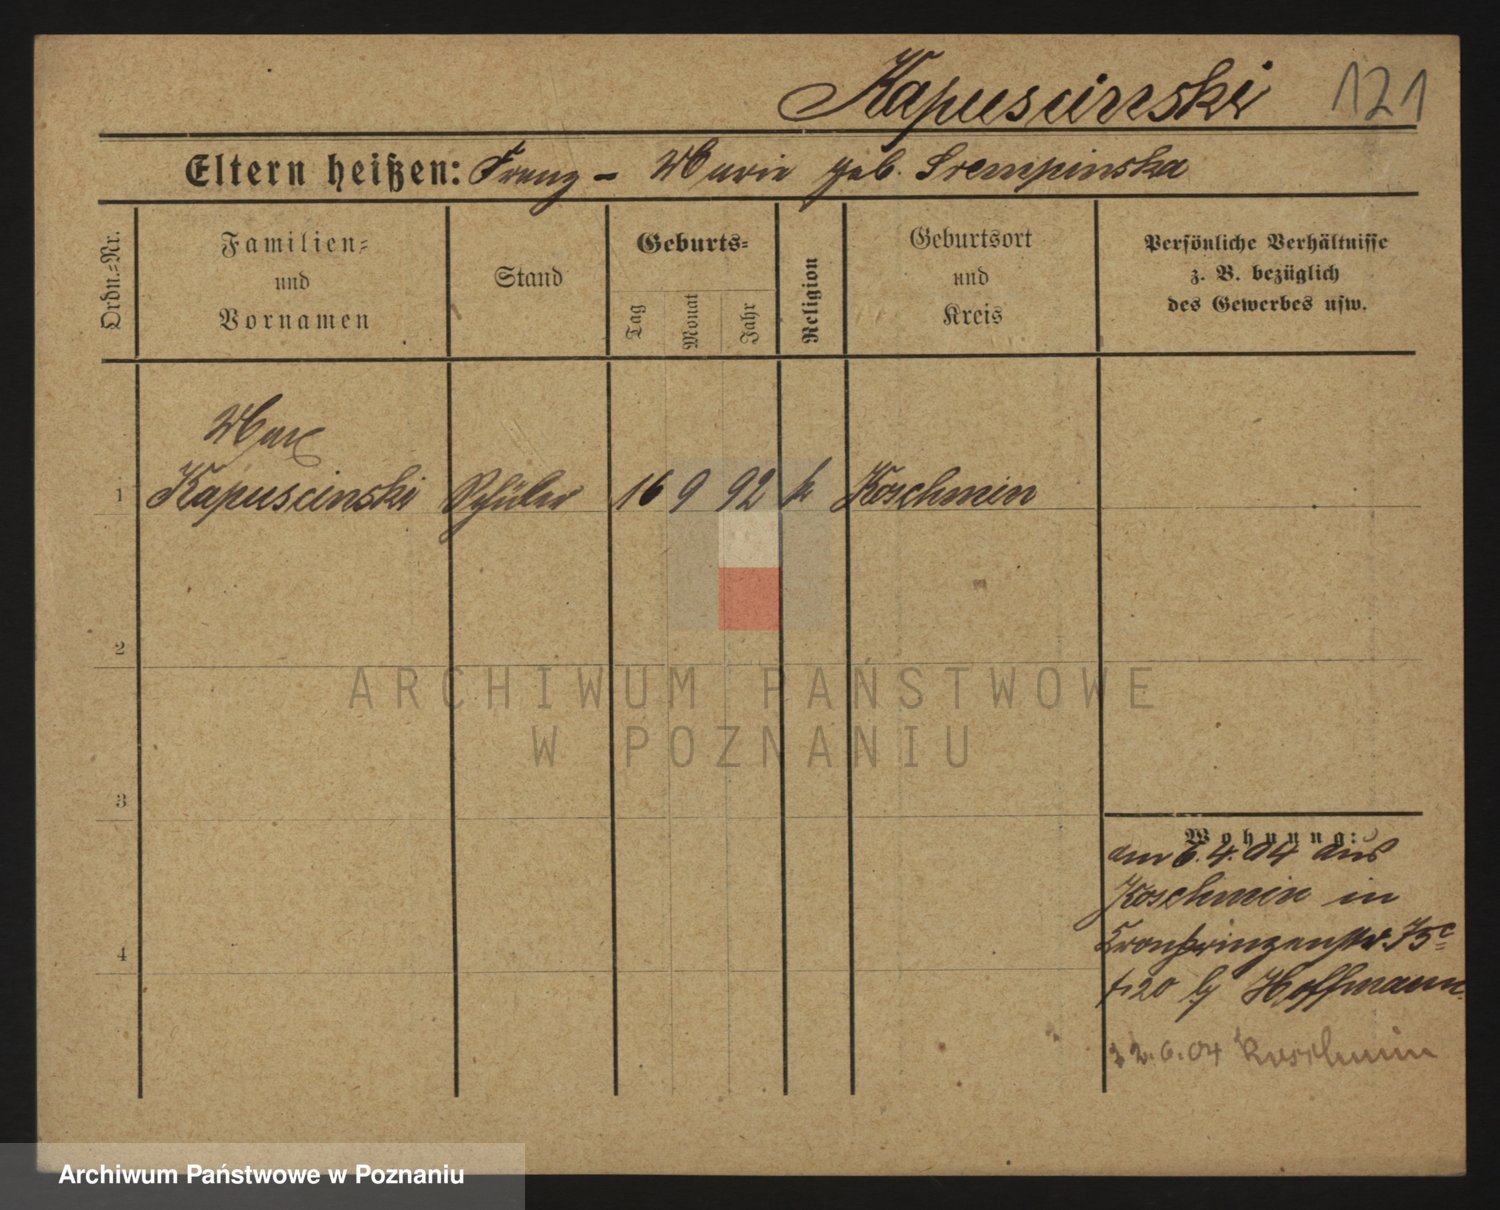 Kapuscinski 121
Eltern heißen: Franz – Marie geb. Srempinska
Ordn.=Nr.
Familien=
und
Vornamen
Stand
Geburts=
Tag
Monat
Jahr
Religion
Geburtsort
und
Kreis
Persönliche Verhältnisse
z. B. bezüglich
des Gewerbes usw.
Max
1 Kapuscinski Schüler 16 9 92 k Koschmin
2
ARCHIWUM PAŃSTWOWE
W POZNANIU
3
Wohnung:
am 6.4.04 aus
Koschmin in
Kronprinzenstr. 75c
Hoffmann
2.6.04 Koschmin
4
Archiwum Państwowe w Poznaniu